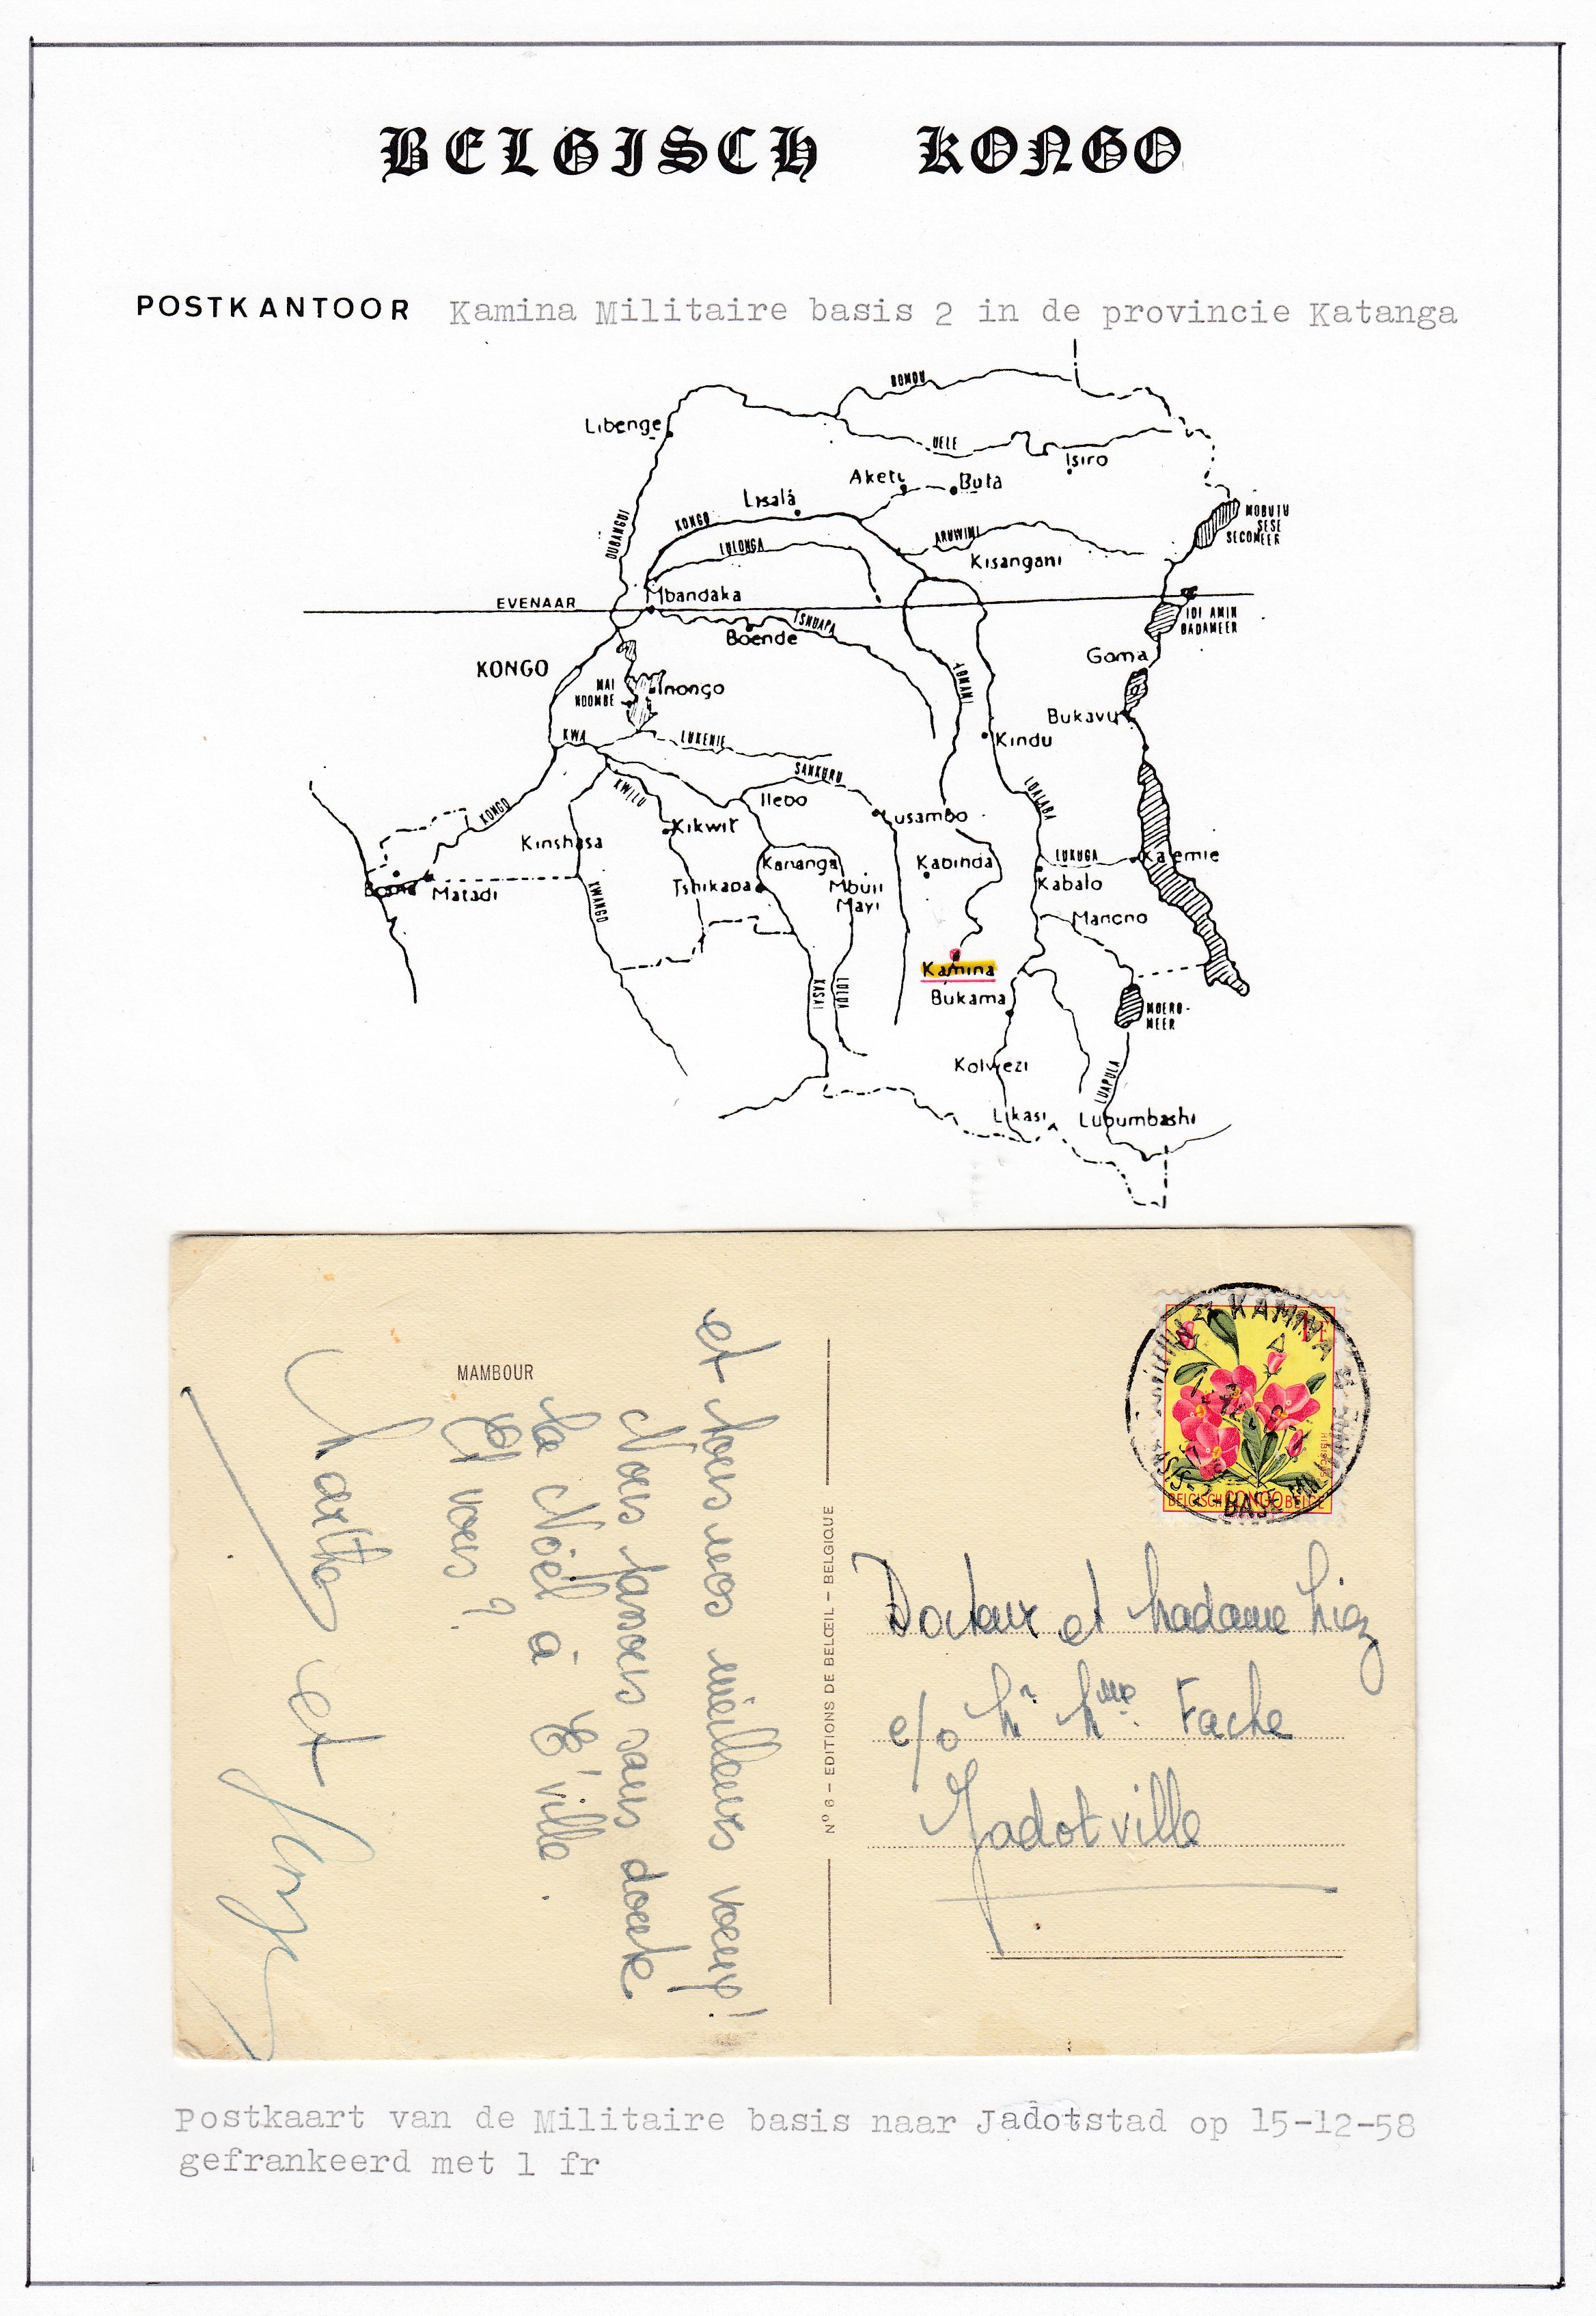 BELGISCH KONGO
POSTKANTOOR Kamina Militaire basis 2 in de provincie Katanga
BOMU
Libenge
UELE
Isiro
Aketi
Buta
Lisala
MOBUTU
SESE
SECOMEER
OUBANGUI
KONGO
ARUWIMI
LULONGA
Kisangani
Mbandaka
EVENAAR
IDI AMIN
DADAMEER
TSHUAPA
Boende
Goma
KONGO
LOMAMI
MAI
NDOMBE
Inongo
Bukavu
KWA
LUKENIE
Kindu
SANKURU
KWILU
Ilebo
LUALABA
KONGO
Lusambo
Kikwit
Kinshasa
Kananga
Kabinda
LUKUGA
Kalemie
Boma
Matadi
KWANGO
Tshikapa
Mbuji
Mayi
Kabalo
Manono
Kamina
Bukama
KASAI
LULUA
MOERO-
MEER
Kolwezi
LUAPULA
Likasi
Lubumbashi
MAMBOUR
et tous nos meilleurs voeux!
Nous fanons sans doute
la Noël à E'ville.
Et vous?
Marthe et Serge
Nº 6 – EDITIONS DE BELŒIL – BELGIQUE
KAMINA
BASE MILITAIRE-2
BASIS-2
1F
HIBISCUS
BELGISCH CONGO BELGE
Docteur et Madame
c/o Mr Mme Fache
Jadotville
Postkaart van de Militaire basis naar Jadotstad op 15-12-58
gefrankeerd met 1 fr